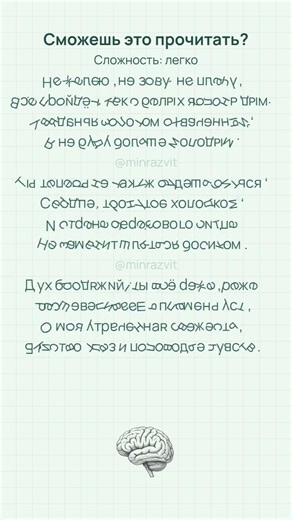 Сможешь это прочитать?
Сложность: легко
Не жалею, не зову, не плачу,
Все пройдёт, как с белых яблонь дым.
Увяданья золотом охваченный,
Я не буду больше молодым.
@minrazvit
Ты теперь не так уж будешь биться,
Сердце, тронутое холодком,
И страна березового ситца
Не заманит шляться босиком.
@minrazvit
Дух бродяжий, ты всё реже, реже
Расшевеливаешь пламень уст,
О моя утраченная свежесть,
Буйство глаз и половодье чувств.